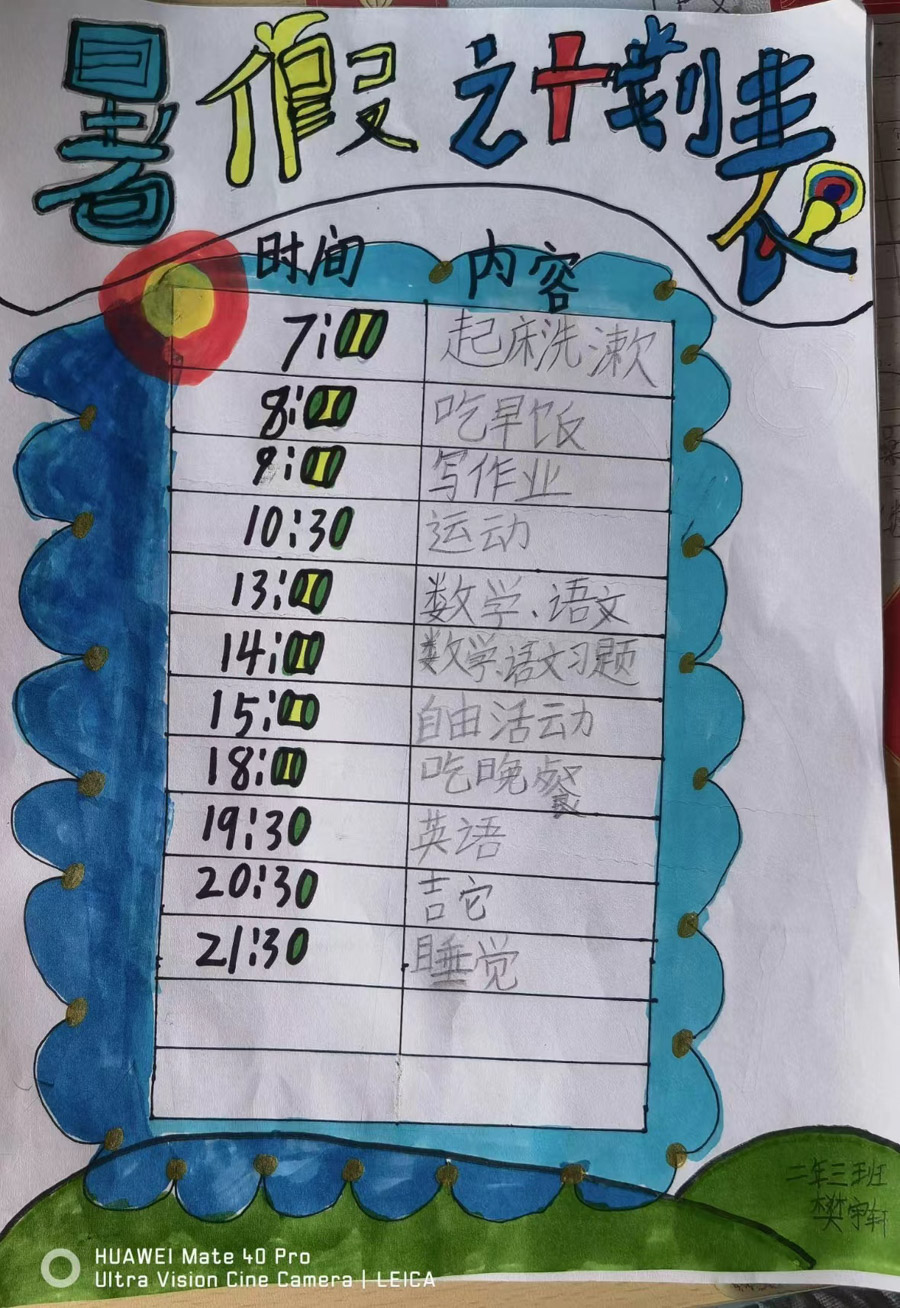 暑假计划表
时间 内容
7:00 起床洗漱
8:00 吃早饭
9:00 写作业
10:30 运动
13:00 数学、语文
14:00 数学、语文习题
15:00 自由活动
18:00 吃晚餐
19:30 英语
20:30 吉它
21:30 睡觉
二年三班
樊宇轩
HUAWEI Mate 40 Pro
Ultra Vision Cine Camera | LEICA